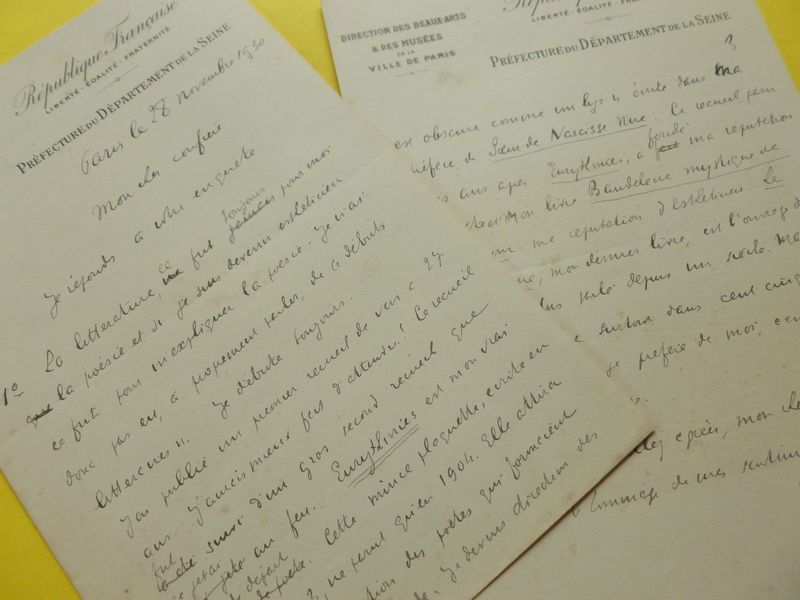 République Française
LIBERTÉ - ÉGALITÉ - FRATERNITÉ
PRÉFECTURE DU DÉPARTEMENT DE LA SEINE
Paris le 28 novembre 1930
Mon cher confrère
Je réponds à votre enquête
1º La littérature, ce fut toujours pour moi
la poésie et si je suis devenu esthéticien
ce fut pour m'expliquer la poésie. Je n'ai
donc pas eu, à proprement parler, de "débuts
littéraires". Je débute toujours.
J'ai publié un premier recueil de vers à 27
ans. J'aurais mieux fait d'attendre! Ce recueil
fut suivi d'un gros second recueil que
je jetai au feu. Eurythmies est mon vrai
départ. Cette mince plaquette, écrite en
ne parut qu'en 1904. Elle attira
des poètes qui formaient
Je devins directeur des
DIRECTION DES BEAUX-ARTS
& DES MUSÉES
DE LA
VILLE DE PARIS
LIBERTÉ - ÉGALITÉ - FRATERNITÉ
PRÉFECTURE DU DÉPARTEMENT DE LA SEINE
3
est obscure comme un lys", écrite dans ma
préface de Sœur de Narcisse Nue. Ce recueil paru
ans après Eurythmies, a fondé ma réputation
mon livre Baudelaire mystique de
ma réputation d'esthéticien. Le
mon dernier livre, est l'ouvrage d
parlé depuis un siècle. Ma
surtout dans cent cinq
je préfère de moi, c'es
agréer, mon che
l'hommage de mes sentim